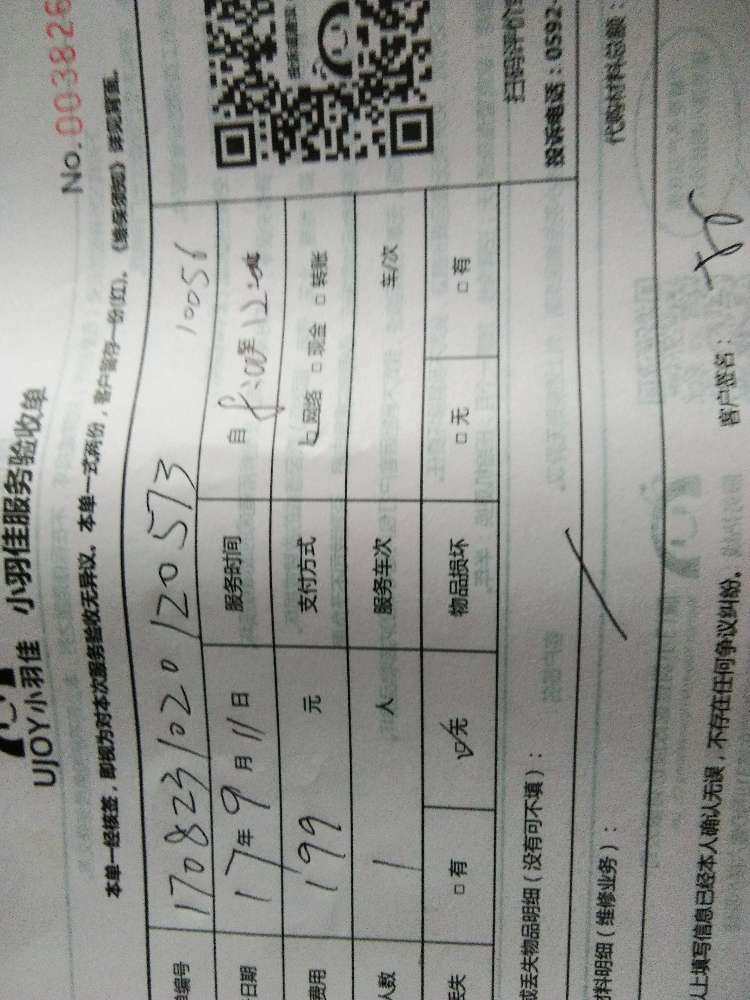 No.003826
UJOY小羽佳 小羽佳服务验收单
本单一经核签，即视为对本次服务验收无异议。本单一式两份，客户留存一份(红)。《维保须知》详见背面。
编号 170823102012 0573 10056
日期 17年9月11日 服务时间 自 8:00至12:00
费用 199 元 支付方式 网络 □现金 □转账
人数 1 人 服务车次 车/次
丢失 □有 ☑无 物品损坏 □无 □有
或丢失物品明细（没有可不填）：
料明细（维修业务）：
扫码评价
投诉电话：0592-
代购材料总额：
上填写信息已经本人确认无误，不存在任何争议纠纷。 客户签名：